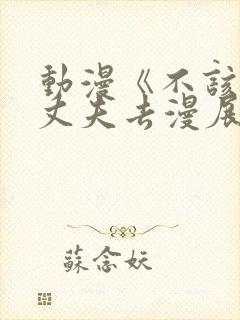 動漫《不該
丈夫去漫展
蘇念妖